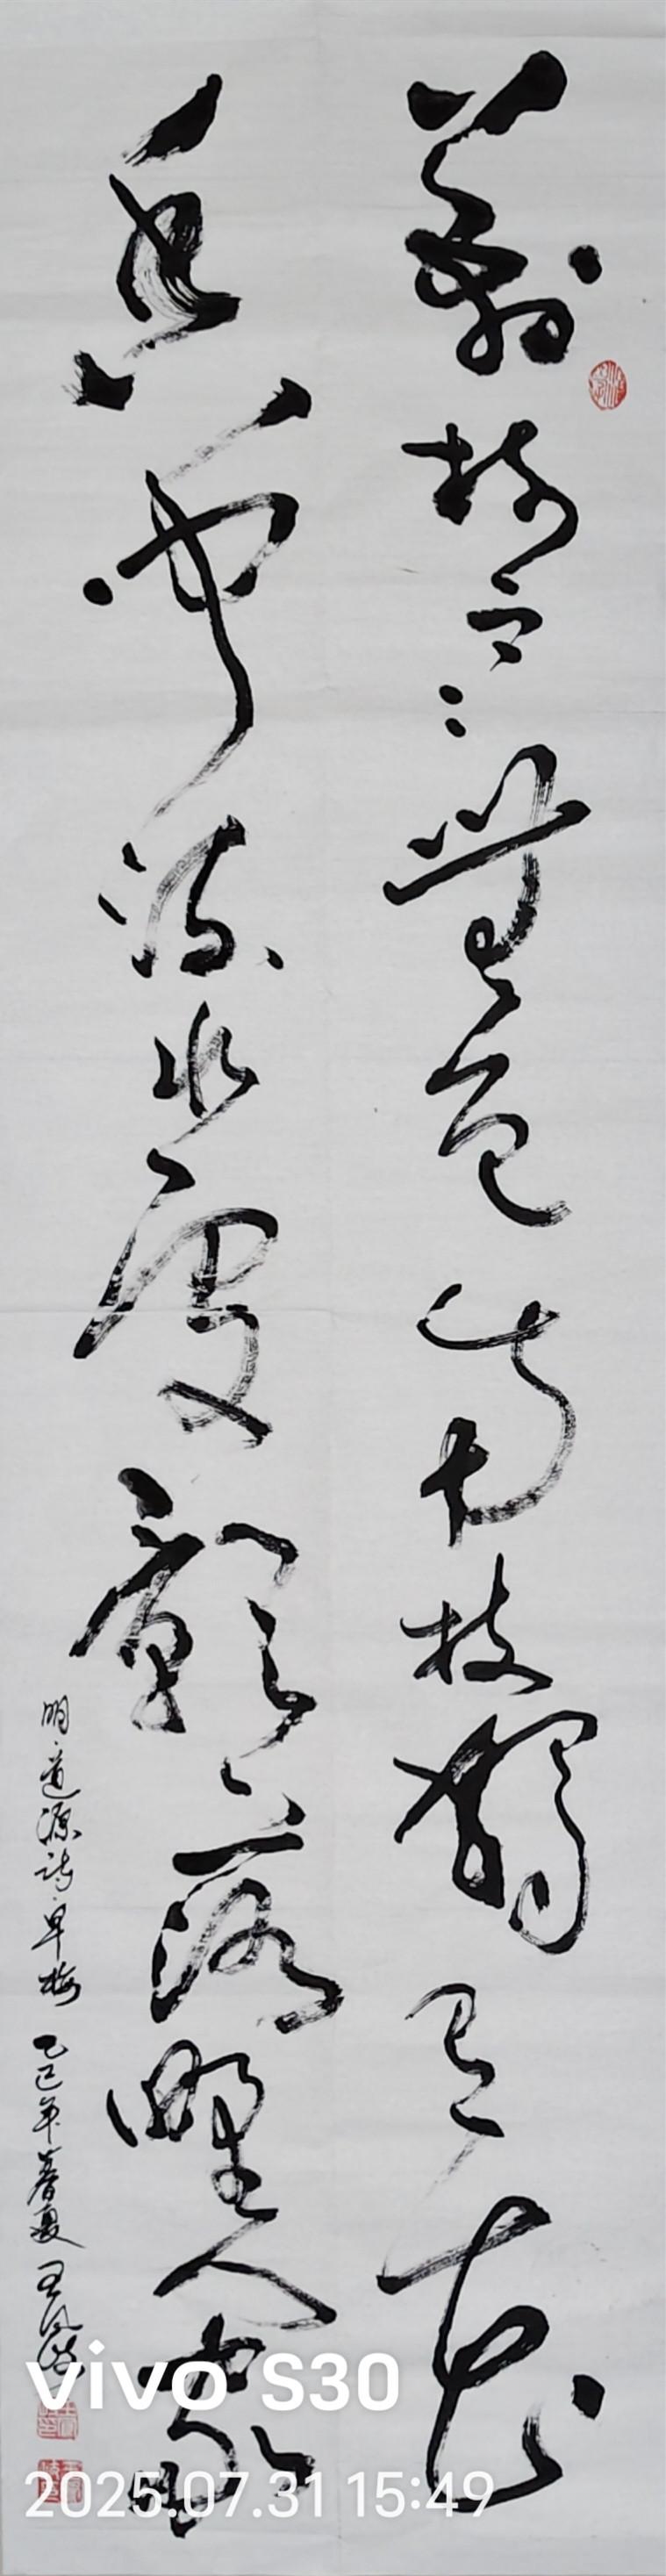 萬树寒無色南枝獨有花
香聞流水處影落野人家
明道源诗早梅 乙巳年夏 王
vivo S30
2025.07.31 15:49